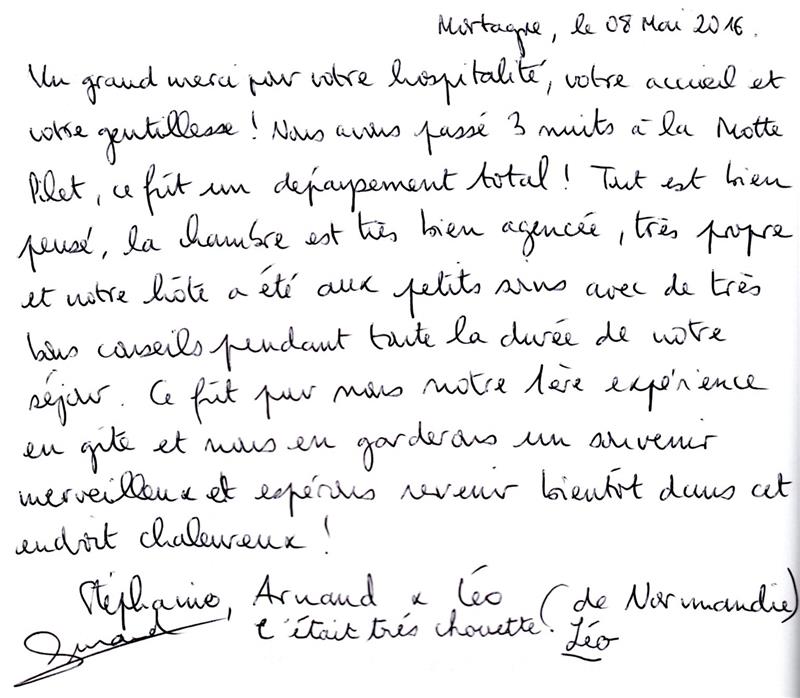 Mortagne, le 08 Mai 2016.
Un grand merci pour votre hospitalité, votre accueil et
votre gentillesse ! Nous avons passé 3 nuits à la Motte
Pilet, ce fût un dépaysement total ! Tout est bien
pensé, la chambre est très bien agencée, très propre
et notre hôte a été aux petits soins avec de très
bons conseils pendant toute la durée de notre
séjour. Ce fût pour nous notre 1ère expérience
en gîte et nous en garderons un souvenir
merveilleux et espérons revenir bientôt dans cet
endroit chaleureux !
Stéphanie, Arnaud & Léo (de Normandie)
C'était trés chouette. Léo